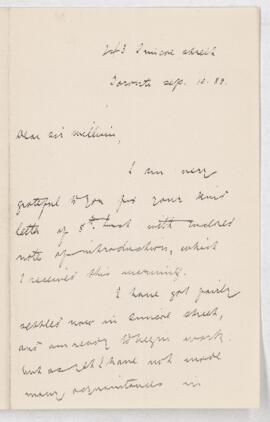 243 Simcoe street
Toronto Sep. 10. 89.
Dear Sir William,
I am very
grateful to you for your kind
letter of 5th. inst with enclosed
note of introduction, which
I received this morning.
I have got fairly
settled now in Simcoe street,
and am ready to begin work.
but as yet I have not made
many acquaintances in